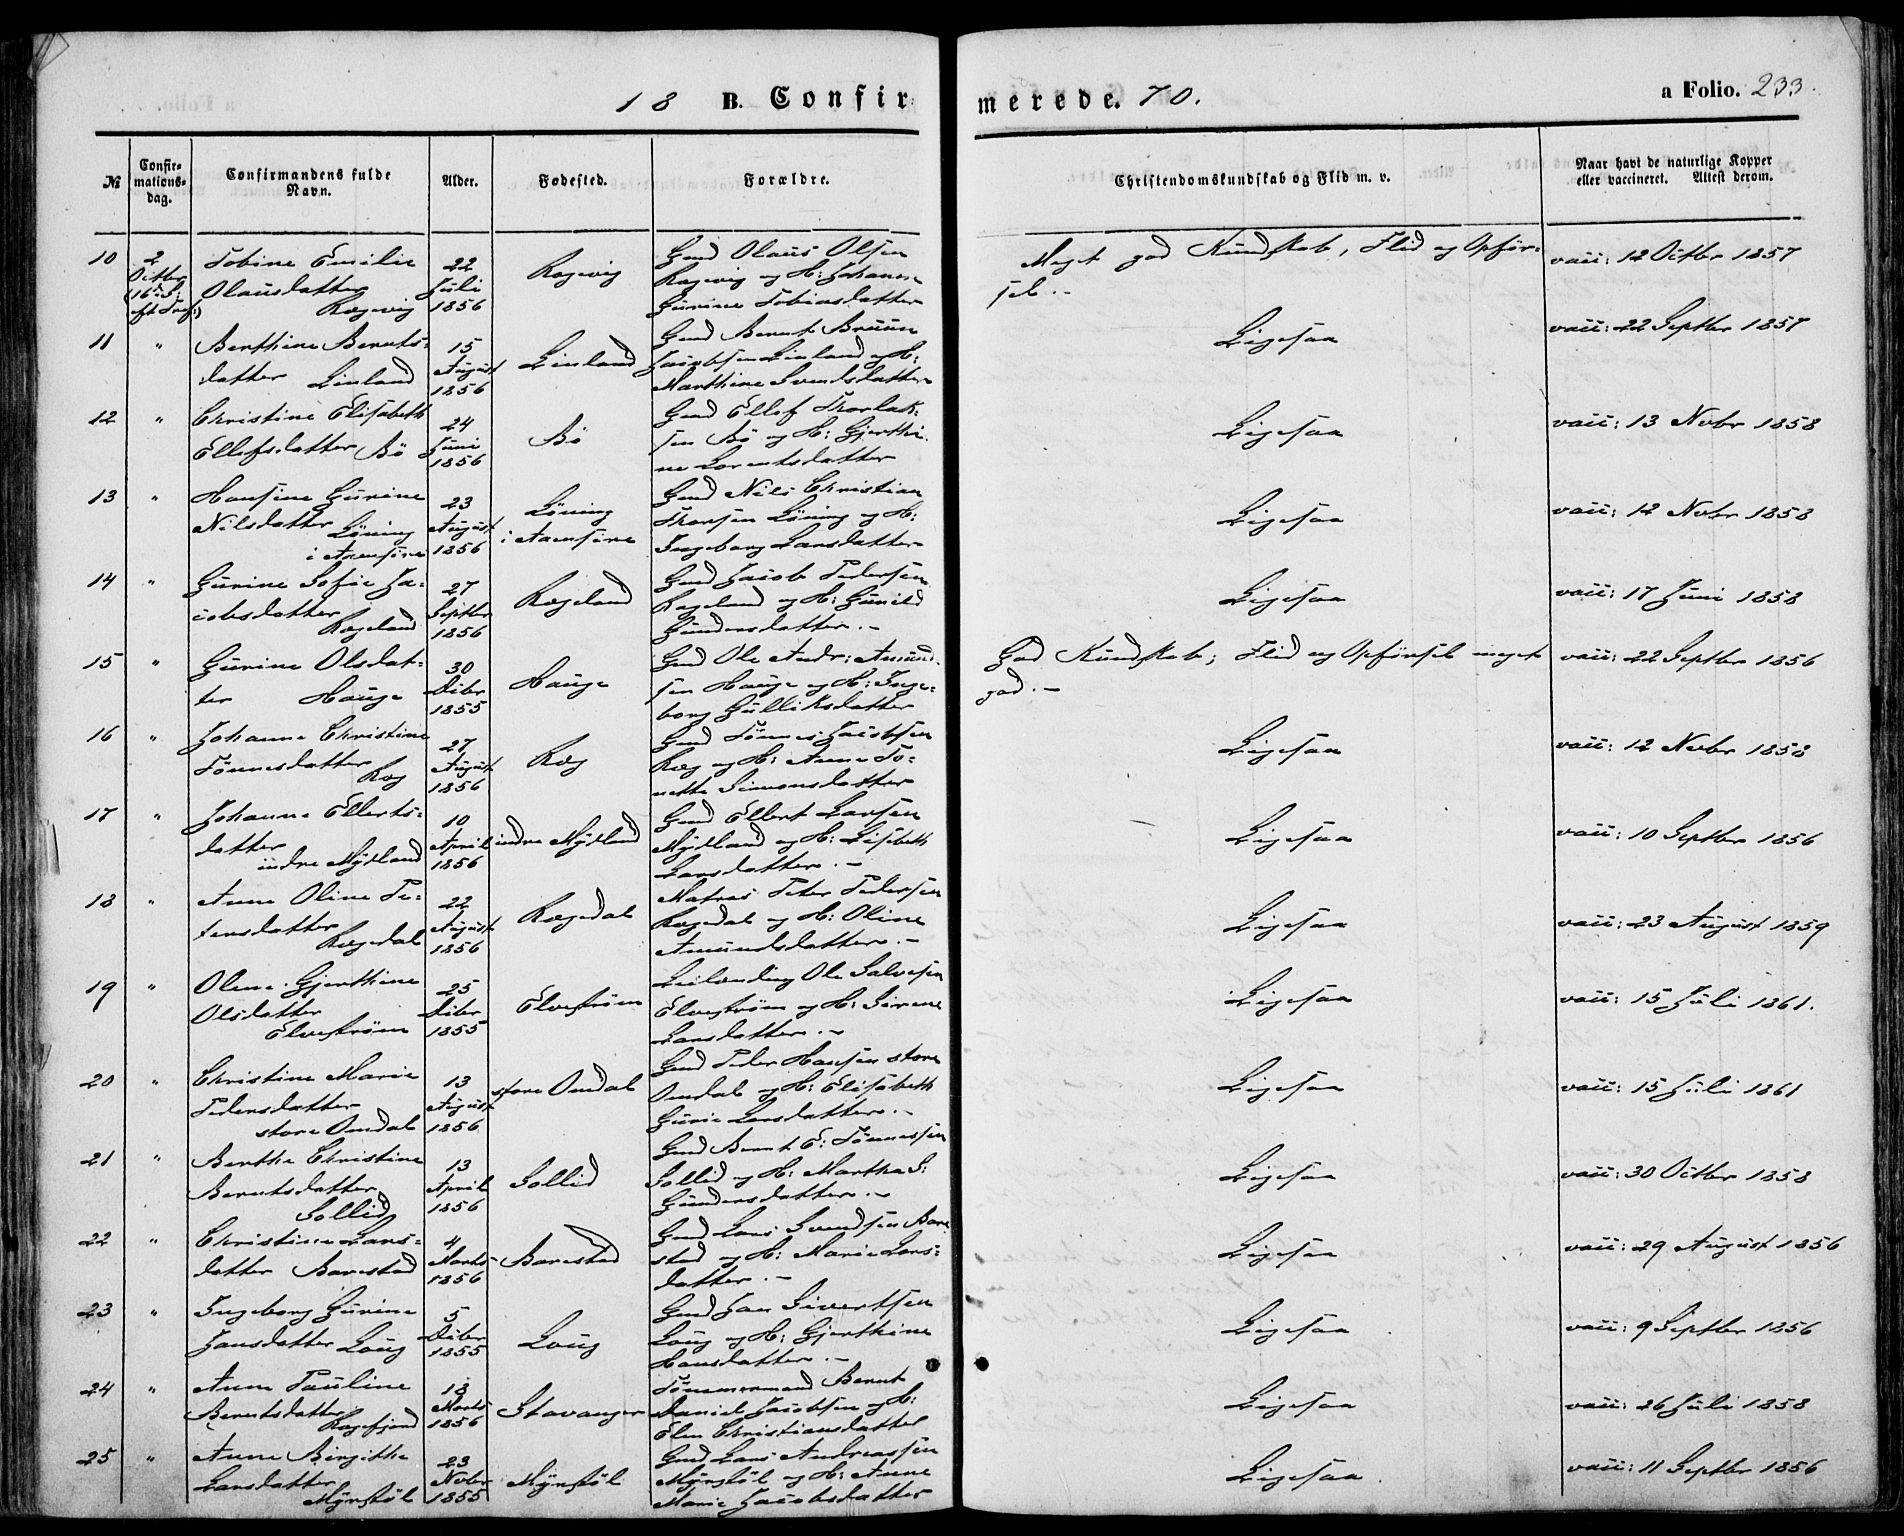 18 B. Confirmerede. 70.
a Folio. 233.
№
Confirmationsdag.
Confirmandens fulde Navn.
Alder.
Fødested.
Forældre.
Christendomskundskab og Flid m. v.
Naar havt de naturlige Kopper eller vaccineret. Attest derom.
10 2 Octbr (16 S: eft Tref:)
Tobine Emilie
Olausdatter
Rægevig
22 Juli 1856
Rægevig
Gmd Olaus Olsen
Rægevig og H: Johanne
Gurine Tobiasdatter
Meget god Kundskab, Flid og Opførsel.-
vacc: 12 Octbr 1857
11 "
Berthine Berents-
datter Linland
15 August 1856
Linland
Gmd Bernt Bruun
Jacobsen Linland og H:
Marthine Svendsdatter
Ligesaa
vacc: 22 Septbr 1857
12 "
Christine Elisabeth
Ellefsdatter Bö
24 Juni 1856
Bö
Gmd Ellef Thorlak-
sen Bö og H: Gjerthi-
ne Lorentsdatter
Ligesaa
vacc: 13 Novbr 1858
13 "
Hansine Gurine
Nilsdatter Löning
i Aaensire
23 August 1856
Löning
i Aaensire
Gmd Nils Christian
Thorsen Löning og H:
Ingeborg Larsdatter
Ligesaa
vacc: 12 Novbr 1858
14 "
Gurine Sofie Ja-
cobsdatter
Rægeland
27 Septbr 1856
Rægeland
Gmd Jacob Pedersen
Rægeland og H: Gunild
Gundersdatter.-
Ligesaa
vacc: 17 Juni 1858
15 "
Gurine Olsdat-
ter Hauge
30 Dcbr 1855
Hauge
Gmd Ole Andr: Amund-
sen Hauge og H: Inge-
borg Gulliksdatter
God Kundskab; Flid og Opførsel meget
god.-
vacc: 22 Septbr 1856
16 "
Johanne Christine
Tönnesdatter
Ræg
27 August 1856
Ræg
Gmd Tönnes Jacobsen
Ræg og H: Anne To-
nette Simonsdatter
Ligesaa
vacc: 12 Novbr 1858
17 "
Johanne Ellerts-
datter
indre Mydland
10 April 1856
indre Mydland
Gmd Ellert Larsen
Mydland og H: Lisebeth
Larsdatter.-
Ligesaa
vacc: 10 Septbr 1856
18 "
Anne Oline Pe-
tersdatter
Rægedal
22 August 1856
Rægedal
Matros Peter Pedersen
Rægedal og H: Oline
Amundsdatter.-
Ligesaa
vacc: 23 August 1859
19 "
Olene Gjerthine
Olsdatter
Elvestrøm
25 Dcbr 1855
Elvestrøm
Leilænding Ole Salvesen
Elvestrøm og H: Sirene
Larsdatter.-
Ligesaa
vacc: 15 Juli 1861.
20 "
Christine Marie
Pedersdatter
store Omdal
13 August 1856
store Omdal
Gmd Peder Hansen store
Omdal og H: Elisabeth
Gurie Larsdatter.-
Ligesaa
vacc: 15 Juli 1861
21 "
Berthe Christine
Berntsdatter
Sollid
13 April 1856
Sollid
Gmd Bernt E: Tönnessen
Sollid og H: Martha S:
Gundersdatter.-
Ligesaa
vacc: 30 Octbr 1858
22 "
Christine Lars-
datter Barestad
4 Marts 1856
Barestad
Gmd Lars Svendsen Bare
stad og H: Marie Lars-
datter.-
Ligesaa
vacc: 29 August 1856
23 "
Ingeborg Gurine
Jansdatter Loug
5 Dcbr 1855
Loug
Gmd Jan Sivertsen
Loug og H: Gjerthine
Hansdatter.-
Ligesaa
vacc: 9 Septbr 1856
24 "
Anne Pauline
Berntsdatter
Rægefjord
18 Marts 1856
Stavanger
Tömmermand Bernt
Daniel Jacobsen og H:
Elen Christiansdatter
Ligesaa
vacc: 26 Juli 1858
25 "
Anne Birgithe
Larsdatter
Myrstöl
23 Novbr 1855
Myrstöl
Gmd Lars Andreassen
Myrstöl og H: Anne
Marie Jacobsdatter
Ligesaa.
vacc: 11 Septbr 1856